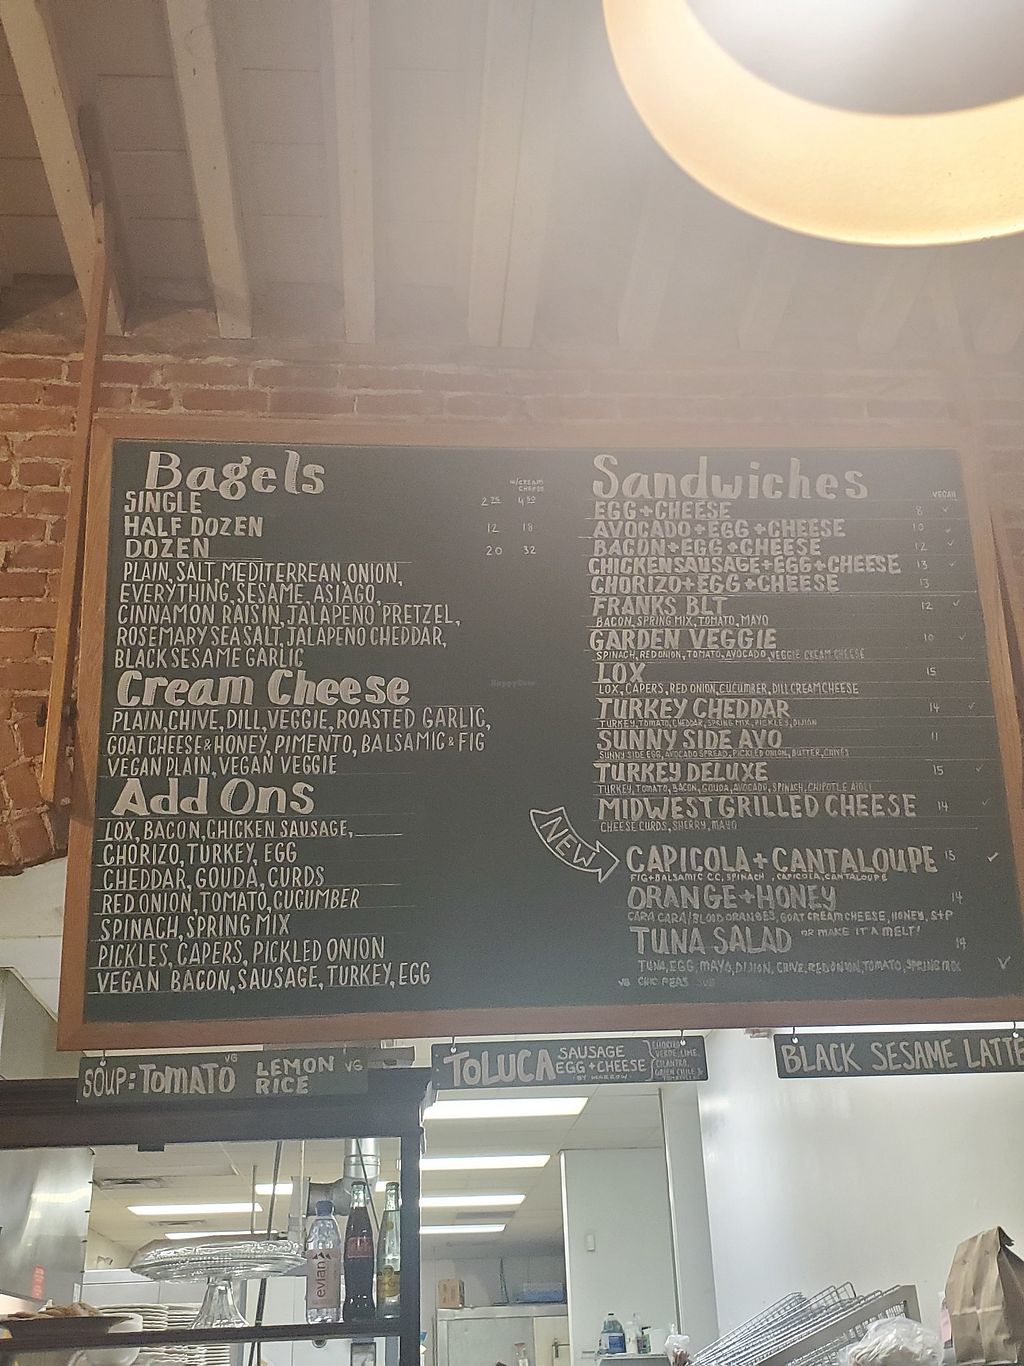 Bagels
W/CREAM CHEESE
SINGLE 2.75 4.50
HALF DOZEN 12 18
DOZEN 20 32
PLAIN, SALT, MEDITERREAN, ONION,
EVERYTHING, SESAME, ASIAGO,
CINNAMON RAISIN, JALAPENO PRETZEL,
ROSEMARY SEA SALT, JALAPENO CHEDDAR,
BLACK SESAME GARLIC
Cream Cheese
PLAIN, CHIVE, DILL, VEGGIE, ROASTED GARLIC,
GOAT CHEESE & HONEY, PIMENTO, BALSAMIC & FIG
VEGAN PLAIN, VEGAN VEGGIE
Add Ons
LOX, BACON, CHICKEN SAUSAGE,
CHORIZO, TURKEY, EGG
CHEDDAR, GOUDA, CURDS
RED ONION, TOMATO, CUCUMBER
SPINACH, SPRING MIX
PICKLES, CAPERS, PICKLED ONION
VEGAN BACON, SAUSAGE, TURKEY, EGG
Sandwiches
VEGAN
EGG + CHEESE 8 ✓
AVOCADO + EGG + CHEESE 10 ✓
BACON + EGG + CHEESE 12 ✓
CHICKEN SAUSAGE + EGG + CHEESE 13 ✓
CHORIZO + EGG + CHEESE 13
FRANKS BLT 12 ✓
BACON, SPRING MIX, TOMATO, MAYO
GARDEN VEGGIE 10 ✓
SPINACH, RED ONION, TOMATO, AVOCADO, VEGGIE CREAM CHEESE
LOX 15
LOX, CAPERS, RED ONION, CUCUMBER, DILL CREAM CHEESE
TURKEY CHEDDAR 14 ✓
TURKEY, TOMATO, CHEDDAR, SPRING MIX, PICKLES, DIJON
SUNNY SIDE AVO 11
SUNNY SIDE EGG, AVOCADO SPREAD, PICKLED ONION, BUTTER, CHIVES
TURKEY DELUXE 15 ✓
TURKEY, TOMATO, BACON, GOUDA, AVOCADO, SPINACH, CHIPOTLE AIOLI
MIDWEST GRILLED CHEESE 14 ✓
CHEESE CURDS, SHERRY, MAYO
NEW
CAPICOLA + CANTALOUPE 15 ✓
FIG + BALSAMIC CC, SPINACH, CAPICOLA, CANTALOUPE
ORANGE + HONEY 14
CARA CARA/BLOOD ORANGES, GOAT CREAM CHEESE, HONEY, S+P
TUNA SALAD OR MAKE IT A MELT! 14
TUNA, EGG, MAYO, DIJION, CHIVE, RED ONION, TOMATO, SPRING MIX ✓
VG CHIC PEAS SUB
HappyCow
SOUP: TOMATO VG LEMON RICE VG
TOLUCA SAUSAGE EGG + CHEESE
CHORIZO VERDE, LIME, CILANTRO, GREEN CHILE
BLACK SESAME LATTE
evian